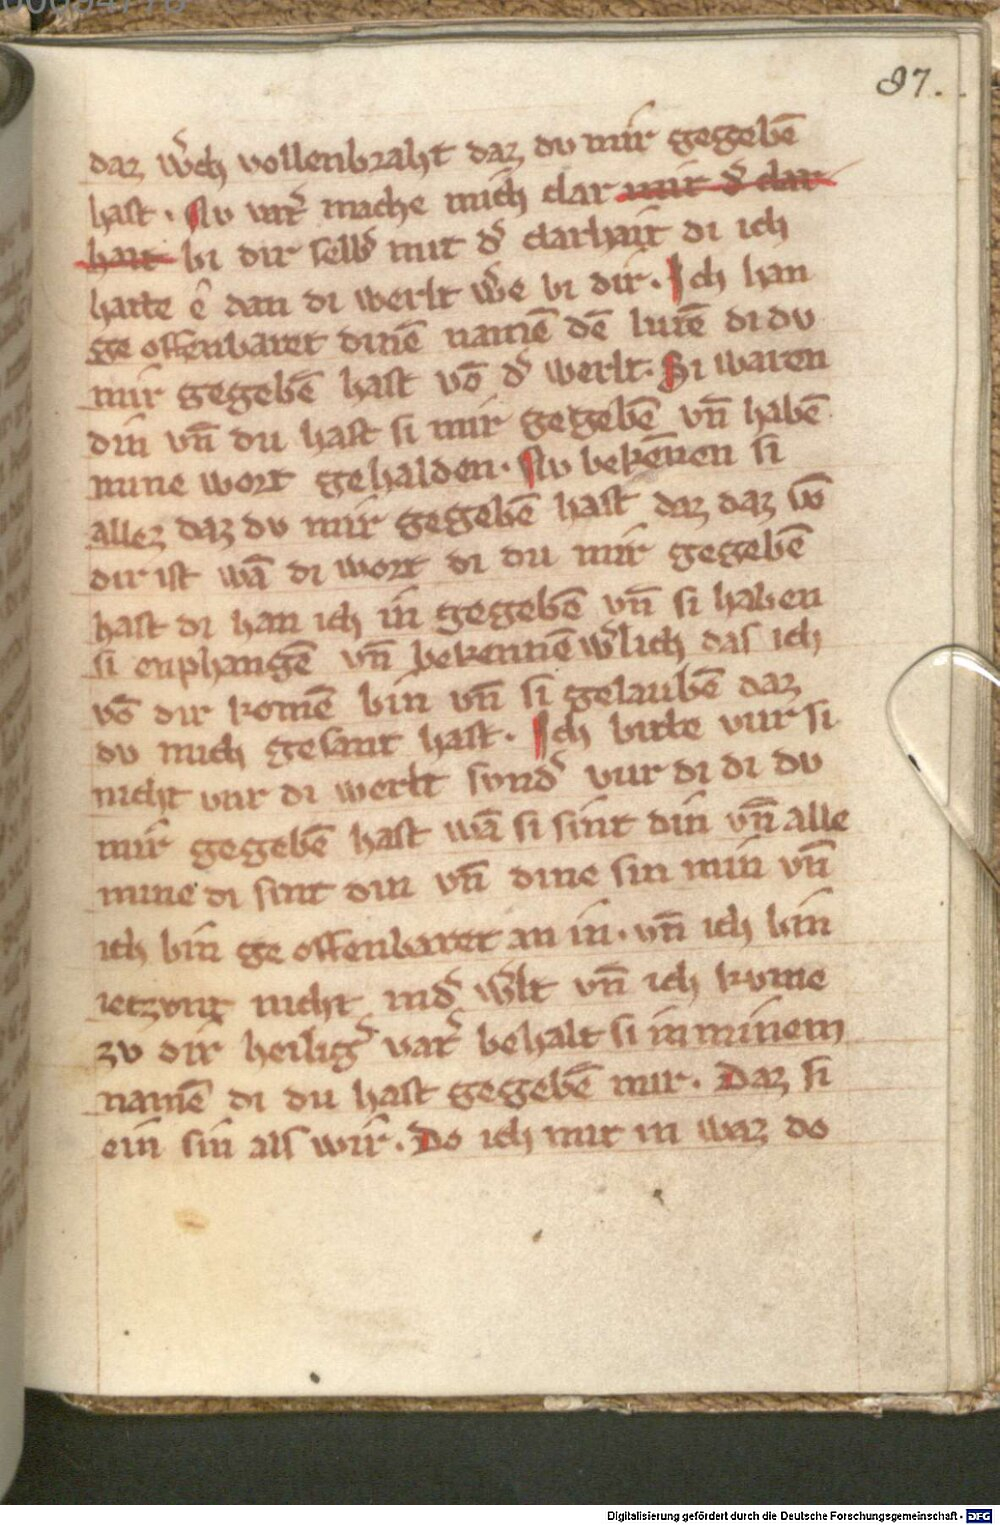 87.
daz w̾ch vollenbraht daz du mir gegebē
hast . Nv vat̾ mache mich clar mit d̾ clar
hait bi dir selb̾ mit d̾ clarhait di ich
hatte ê dan di werlt w̾e bi dir . Ich han
ge offenbaret dinē namē dē lutē di dv
mir gegebē hast vō d̾ werlt . Si waren
din vn̄ du hast si mir gegebē vn̄ habē
mine wort gehalden . Nv bekēnen si
allez daz dv mir gegebē hast daz daz vō
dir ist wā di wort di du mir gegebē
hast di han ich in gegebē vn̄ si haben
si enphangē vn̄ bekennē w̾lich das ich
vō dir komē bin vn̄ si gelaubē daz
dv mich gesant hast . Ich bitte vur si
nicht vur di werlt sund̾ vur di di dv
mir gegebē hast wā si sint din vn̄ alle
mine di sint din vn̄ dine sin min vn̄
ich bin ge offenbaret an in . vn̄ ich bin
ietzvnt nicht in d̾ w̾lt vn̄ ich kvme
zv dir heilig̾ vat̾ behalt si in minem
namē di du hast gegebē mir . Daz si
ein sin als wir . Do ich mit in waz do
Digitalisierung gefördert durch die Deutsche Forschungsgemeinschaft - DFG